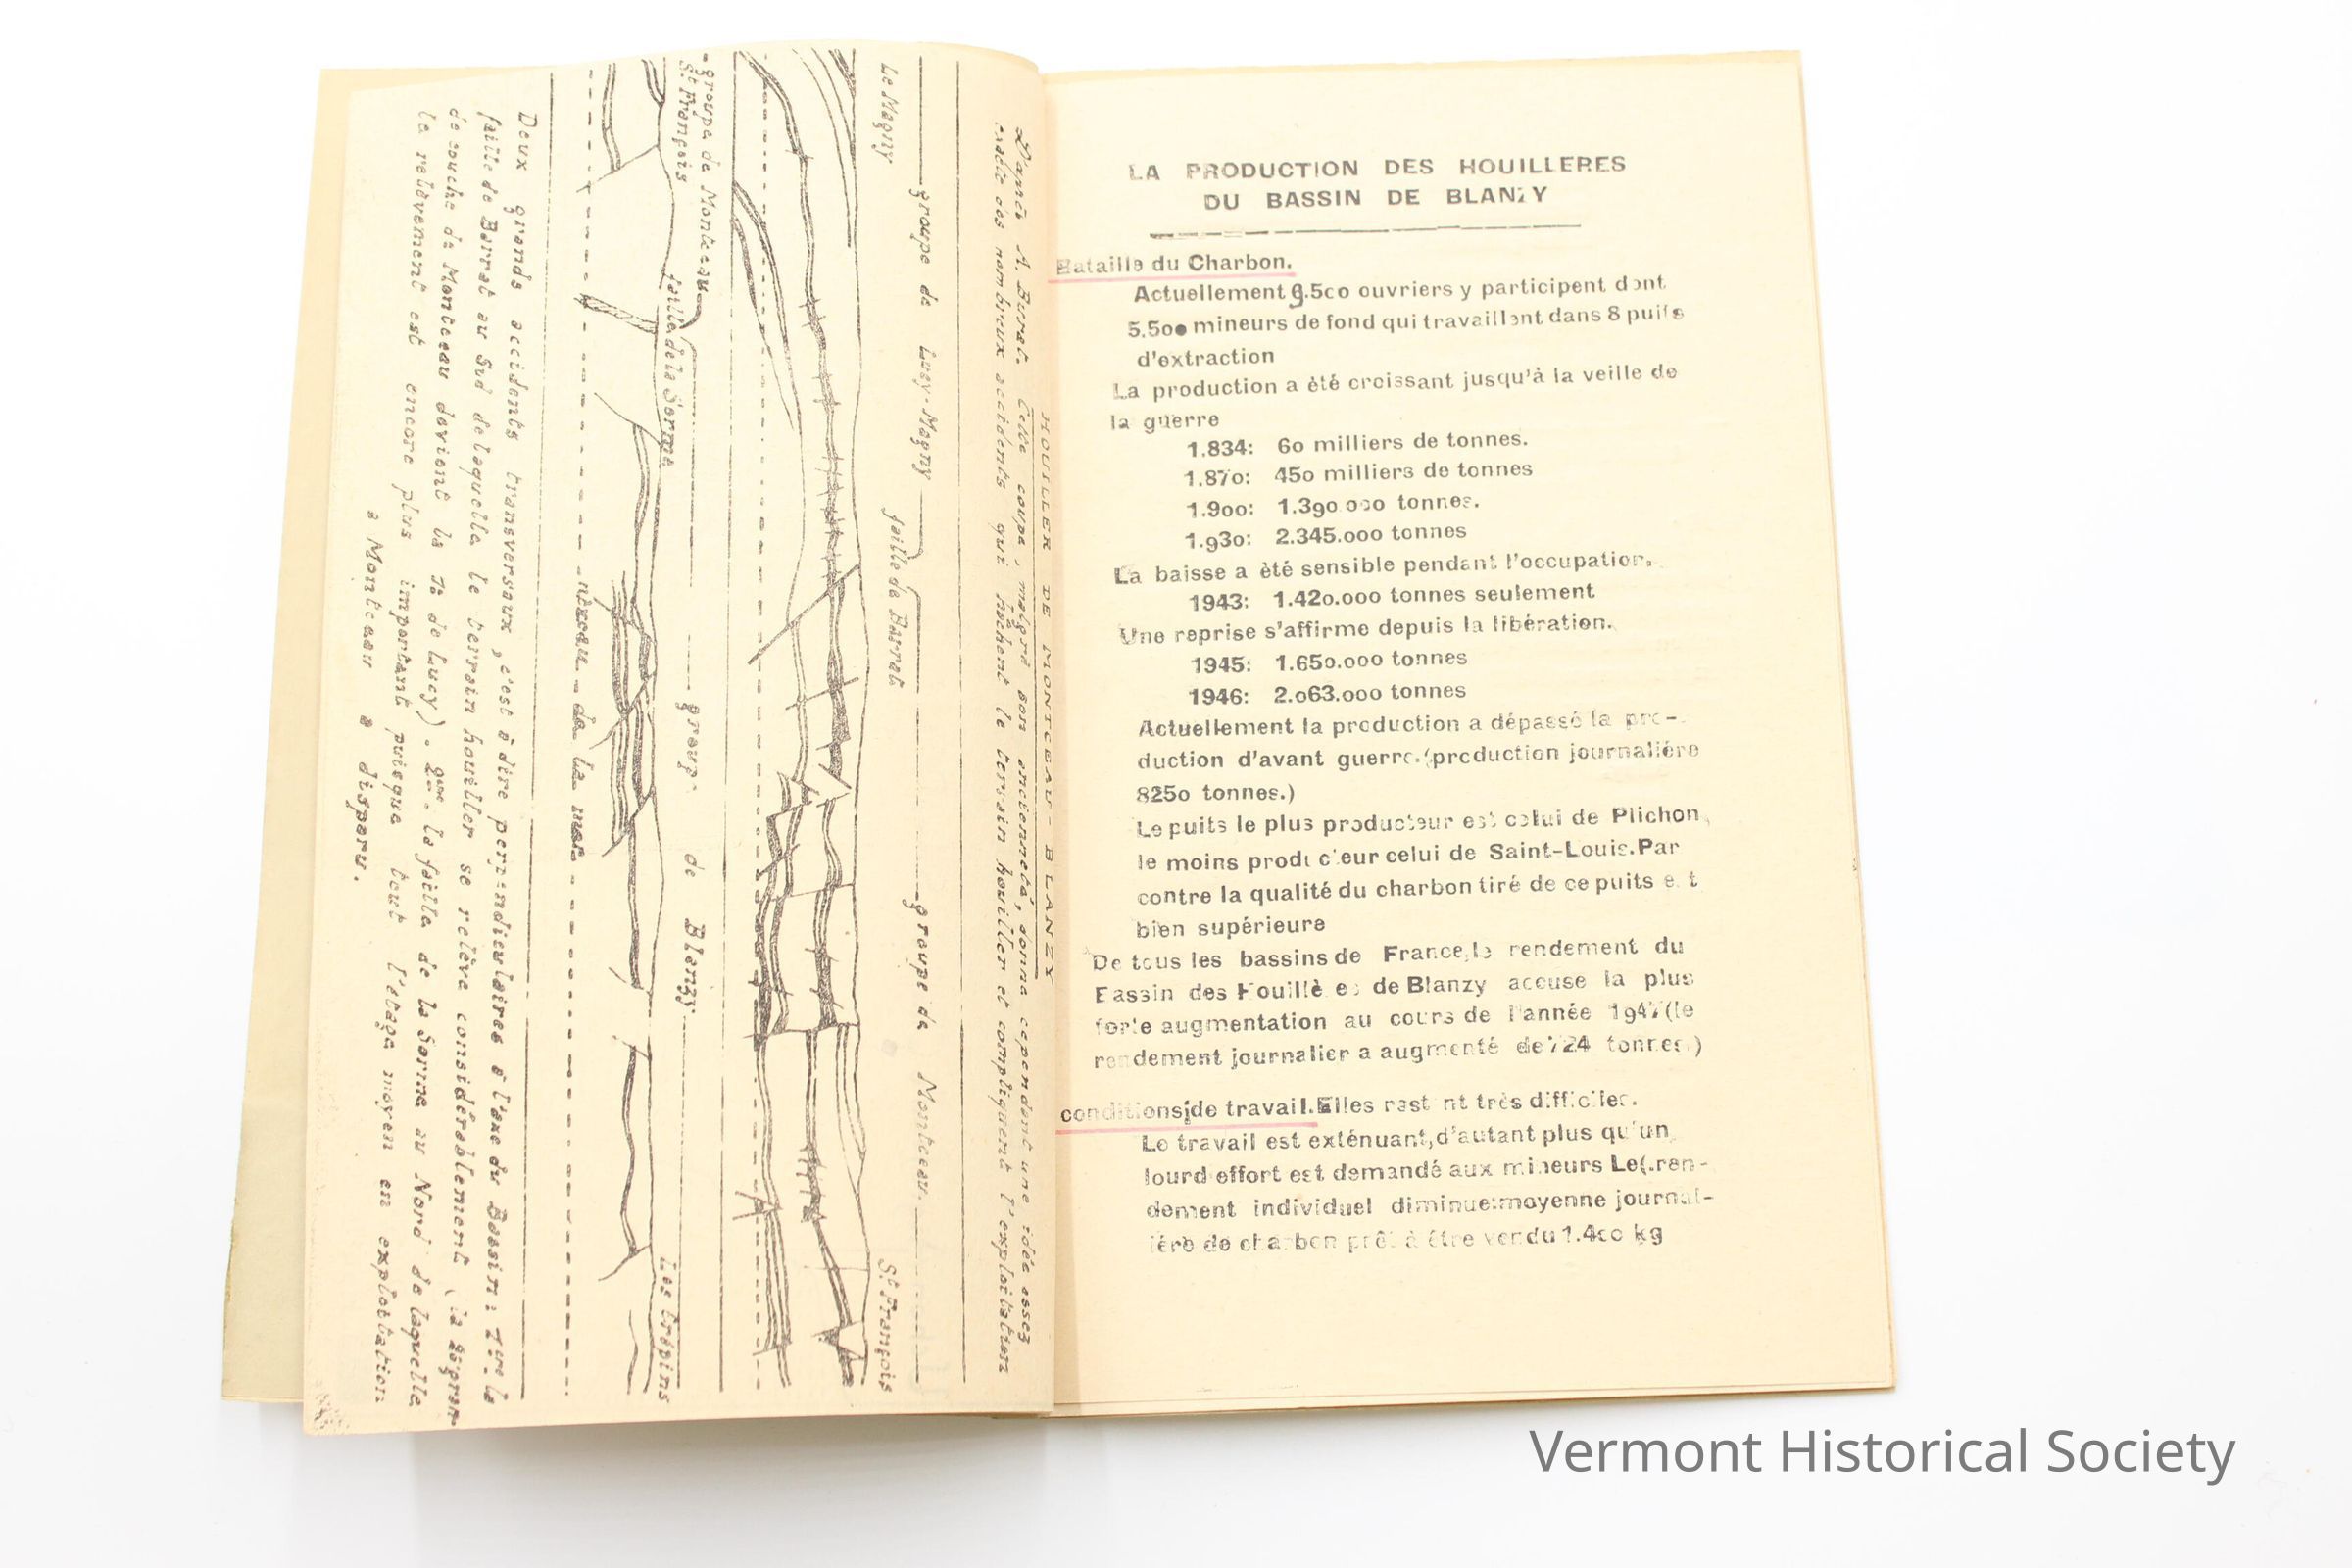 HOUILLER DE MONTCEAU-BLANZY
D'après A. Burat. Cette coupe, malgré son ancienneté, donne cependant une idée assez
exacte des nombreux accidents qui hachent le terrain houiller et compliquent l'exploitation
Le Magny
groupe de Lucy-Magny
faille de Barrat
groupe de Montceau
St François
groupe de Montceau
St François
faille de la Sorme
groupe de Blanzy
Les Crépins
niveau de la mer
Deux grands accidents transversaux, c'est à dire perpendiculaires à l'axe du Bassin: 1ere la
faille de Barrat au Sud de laquelle le terrain houiller se relève considérablement (la 2e gran-
de couche de Montceau devient la de Lucy). 2ème - la faille de la Sorme au Nord de laquelle
le relèvement est encore plus important puisque tout l'étage moyen en exploitation
à Montceau a disparu.
LA PRODUCTION DES HOUILLERES
DU BASSIN DE BLANZY
Bataille du Charbon.
Actuellement 9.5oo ouvriers y participent dont
5.5oo mineurs de fond qui travaillent dans 8 puits
d'extraction
La production a èté croissant jusqu'à la veille de
la guerre
1.834: 6o milliers de tonnes.
1.87o: 45o milliers de tonnes
1.9oo: 1.39o ooo tonnes.
1.93o: 2.345.ooo tonnes
La baisse a èté sensible pendant l'occupation.
1943: 1.42o.ooo tonnes seulement
Une reprise s'affirme depuis la libération.
1945: 1.65o.ooo tonnes
1946: 2.o63.ooo tonnes
Actuellement la production a dépassé la pro-
duction d'avant guerre.(production journalière
825o tonnes.)
Le puits le plus producteur est celui de Plichon,
le moins producteur celui de Saint-Louis.Par
contre la qualité du charbon tiré de ce puits est
bien supérieure
De tous les bassins de France,le rendement du
Bassin des Houillères de Blanzy accuse la plus
forte augmentation au cours de l'année 1947(le
rendement journalier a augmenté de 724 tonnes)
conditions de travail.Elles restent très difficiles.
Le travail est exténuant,d'autant plus qu'un
lourd effort est demandé aux mineurs Le(.ren-
dement individuel diminue:moyenne journal-
ière de charbon prêt à être vendu 1.4oo kg
Vermont Historical Society